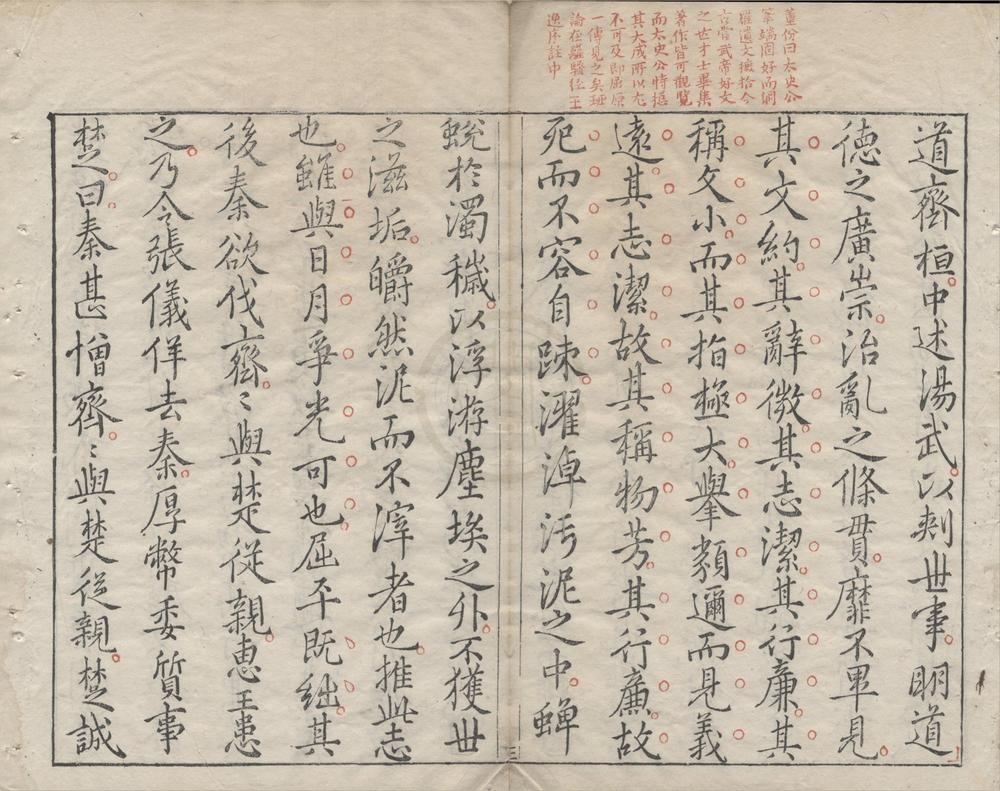 董份曰太史公
筆端固好而網
羅遺文摭拾今
古當武帝好文
之世才士畢集
著作皆可觀覽
而太史公時摠
其大成所以尤
不可及即屈原
一傳見之矣班
論在離騷經王
逸序註中
道齊桓中述湯武以刺世事明道
德之廣崇治亂之條貫靡不畢見
其文約其辭微其志潔其行廉其
稱文小而其指極大舉類邇而見義
遠其志潔故其稱物芳其行廉故
死而不容自疎濯淖汚泥之中蟬
三
蛻於濁穢以浮游塵埃之外不獲世
之滋垢皭然泥而不滓者也推此志
也雖與日月爭光可也屈平既絀其
後秦欲伐齊〻與楚從親惠王患
之乃令張儀佯去秦厚幣委質事
楚曰秦甚憎齊〻與楚從親楚誠